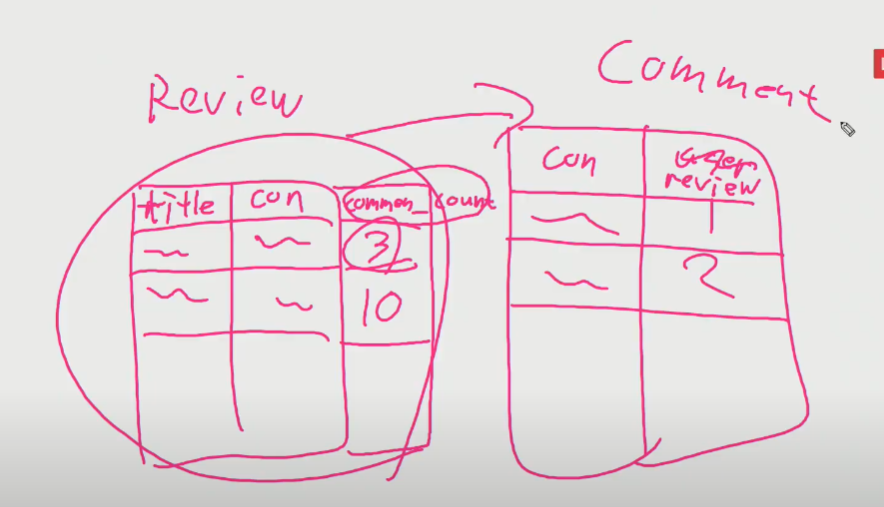 Review
title con common_count
3
10
Comment
con review
1
2